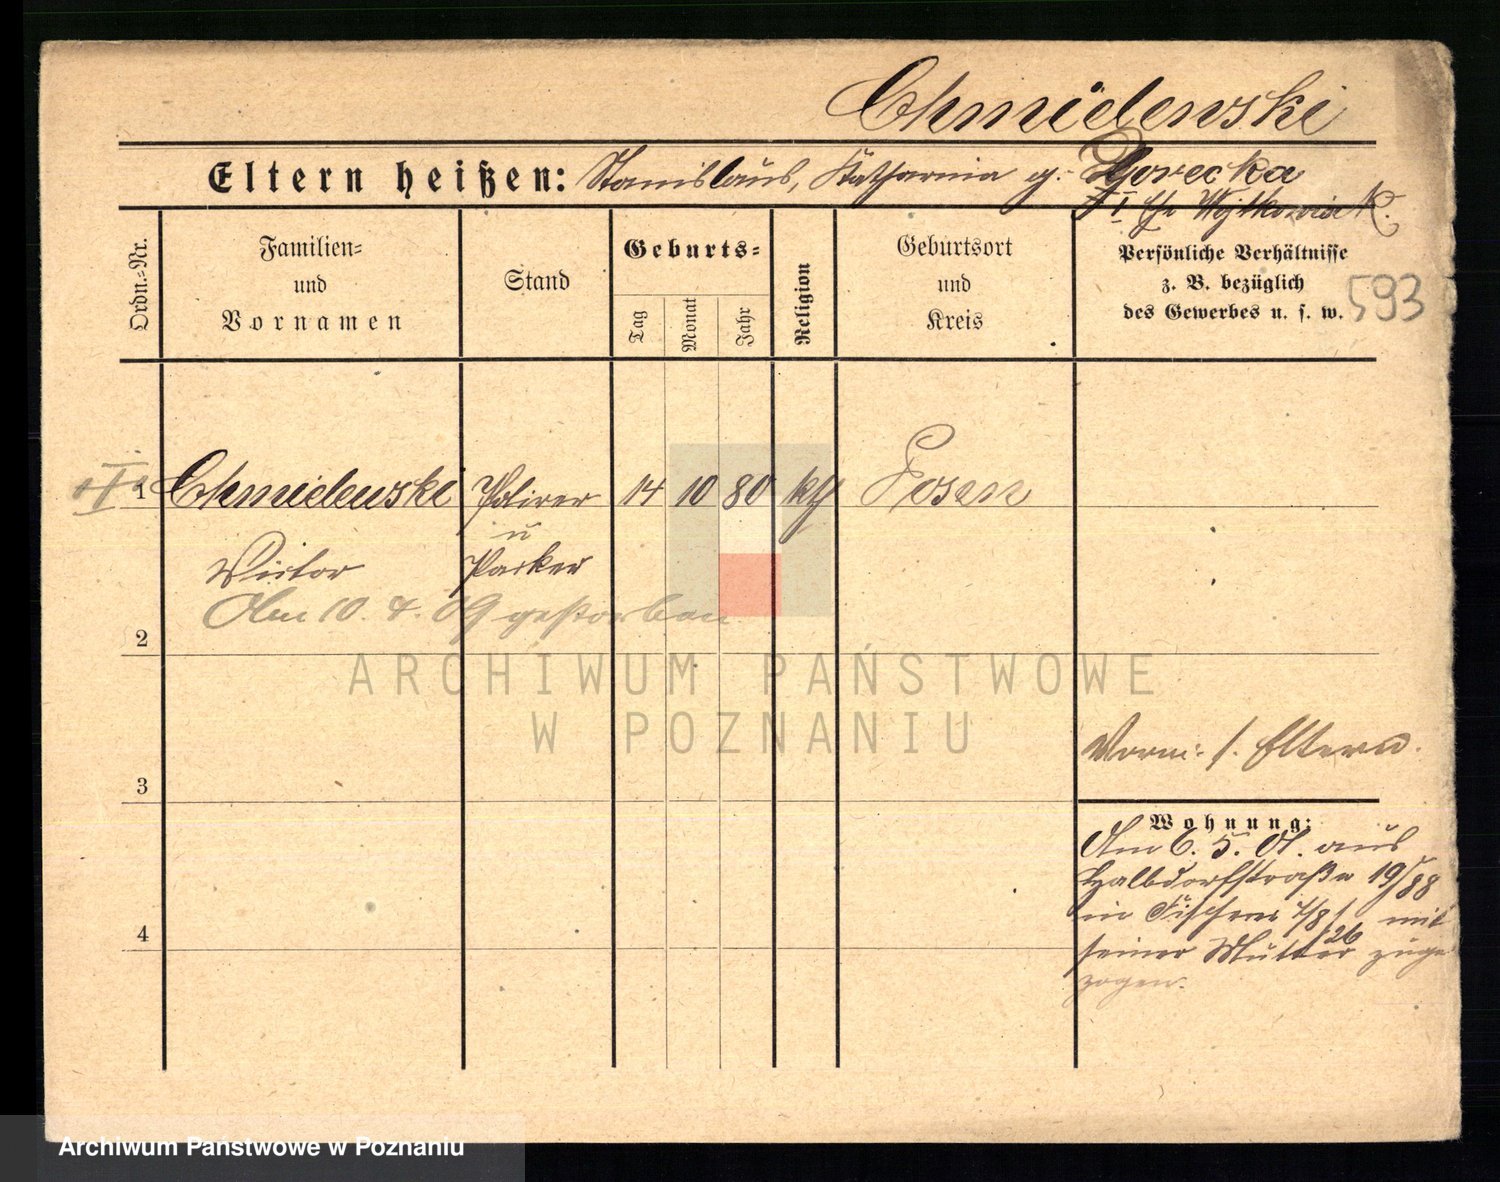 Chmielewski
Eltern heißen: Stanislaus, Katharina g. Gorecka
I Eh. Wojtkowiak.
Ordn.=Nr.
Familien=
und
Vornamen
Stand
Geburts=
Tag
Monat
Jahr
Religion
Geburtsort
und
Kreis
Persönliche Verhältnisse
z. B. bezüglich
des Gewerbes u. s. w.
593
1 Chmielewski Polirer 14 10 80 kth Posen
u
Victor Packer
Am 10. 4. 09 gestorben
2
ARCHIWUM PAŃSTWOWE
W POZNANIU
Vorm: s. Eltern.
3
Wohnung:
Am 6. 5. 01. aus
Halbdorfstraße 19/88
in Fischerei 7/8/26 mit
seiner Mutter zuge
zogen.
4
Archiwum Państwowe w Poznaniu